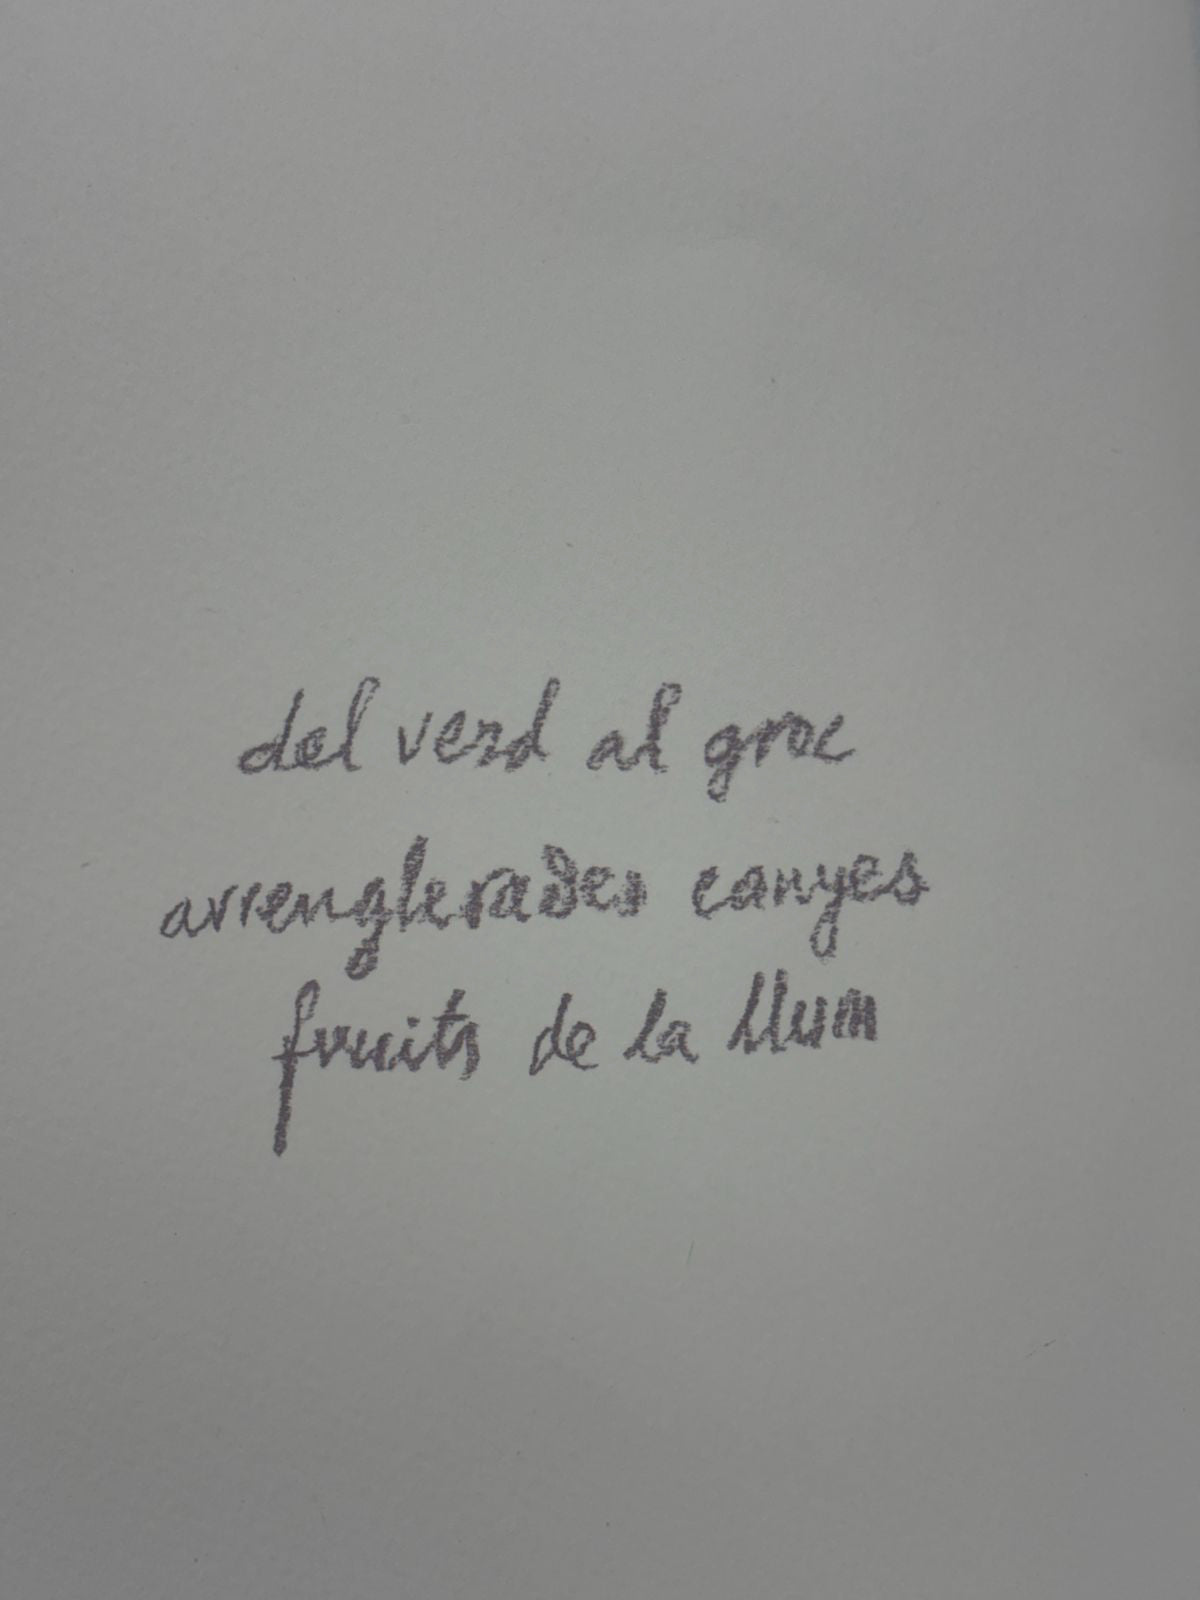 del verd al groc
arrenglerades canyes
fruits de la llum